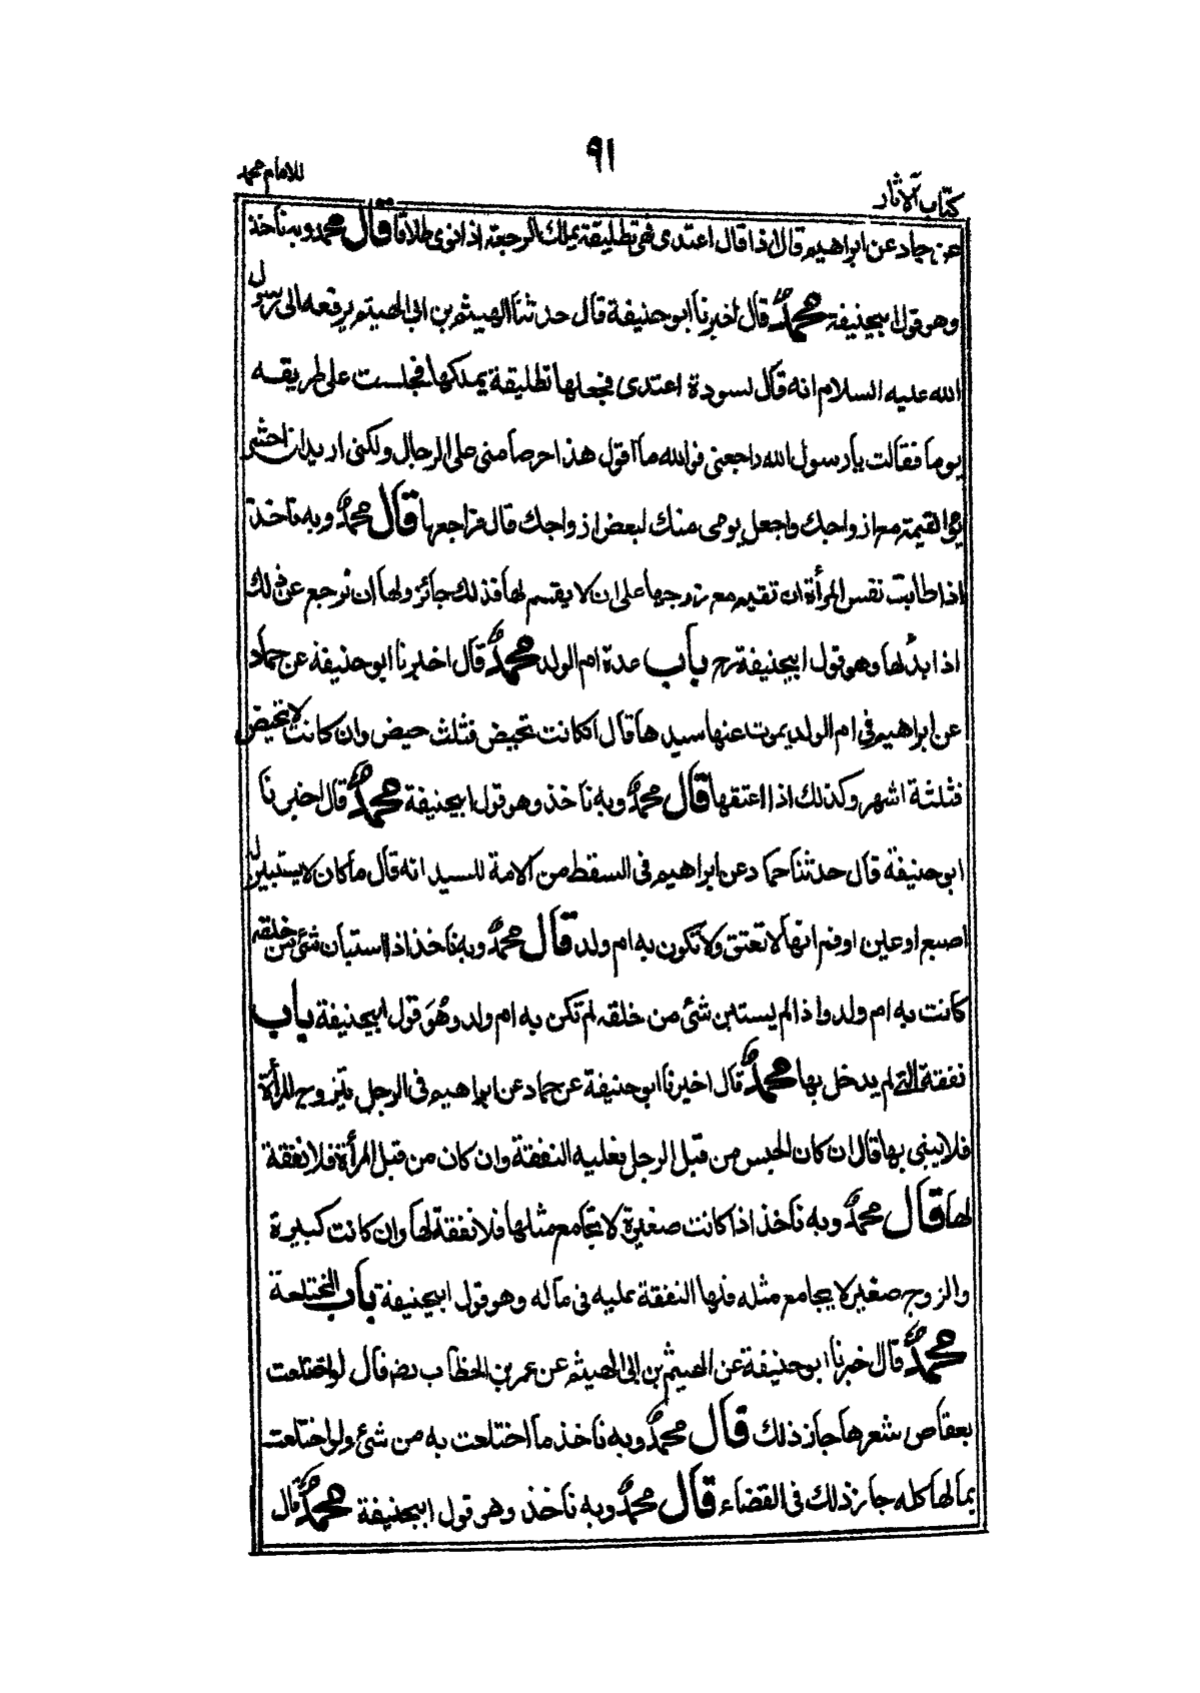 ٩١
كتاب الآثار
للامام محمد
عن حماد عن ابراهيم قال اذا قال اعتدى فهى تطليقة يملك الرجعة اذا نوى طلاقا قال محمد وبه ناخذ
وهو قول ابيحنيفة محمدؒ قال اخبرنا ابوحنيفة قال حدثنا الهيثم بن ابى الهيثم يرفعه الى رسول
الله عليه السلام انه قال لسودة اعتدى فجعلها تطليقة يملكها فجلست على طريقه
يوما فقالت يا رسول الله راجعنى فوالله ما اقول هذا حرصا منى على الرجال ولكنى اريد ان احشر
يوم القيمة مع ازواجك واجعل يومى منك لبعض ازواجك قال فراجعها قال محمدؒ وبه ناخذ
اذا طابت نفس المرأة ان تقيم مع زوجها على ان لا يقسم لها فذلك جائز ولها ان ترجع عن ذلك
اذا بدا لها وهو قول ابيحنيفة رح باب عدة ام الولد محمدؒ قال اخبرنا ابوحنيفة عن حماد
عن ابراهيم فى ام الولد يموت عنها سيدها قال ان كانت تحيض فثلث حيض وان كانت لا تحيض
فثلثة اشهر وكذلك اذا اعتقها قال محمدؒ وبه ناخذ وهو قول ابيحنيفة محمدؒ قال اخبرنا
ابوحنيفة قال حدثنا حماد عن ابراهيم فى السقط من الامة للسيد انه قال ما كان لا يستبين
اصبع او عين او فم انها لا تعتق ولا تكون به ام ولد قال محمدؒ وبه ناخذ اذا استبان شئ من خلقه
كانت به ام ولد واذا لم يستبن شئ من خلقه لم تكن به ام ولد وهُوَ قول ابيحنيفة باب
نفقة التى لم يدخل بها محمدؒ قال اخبرنا ابوحنيفة عن حماد عن ابراهيم فى الرجل يتزوج المرأة
فلا يبنى بها قال ان كان الحبس من قبل الرجل فعليه النفقة وان كان من قبل المرأة فلا نفقة
لها قال محمدؒ وبه ناخذ اذا كانت صغيرة لا يجامع مثلها فلا نفقة لها وان كانت كبيرة
والزوج صغير لا يجامع مثله فلها النفقة عليه فى ماله وهو قول ابيحنيفة باب المختلعة
محمدؒ قال اخبرنا ابوحنيفة عن الهيثم بن ابى الهيثم عن عمر بن الخطاب رضـ قال لو اختلعت
بعقاص شعرها جاز ذلك قال محمدؒ وبه ناخذ ما اختلعت به من شئ ولو اختلعت
بمالها كله جاز ذلك فى القضاء قال محمدؒ وبه ناخذ وهو قول ابيحنيفة محمدؒ قال